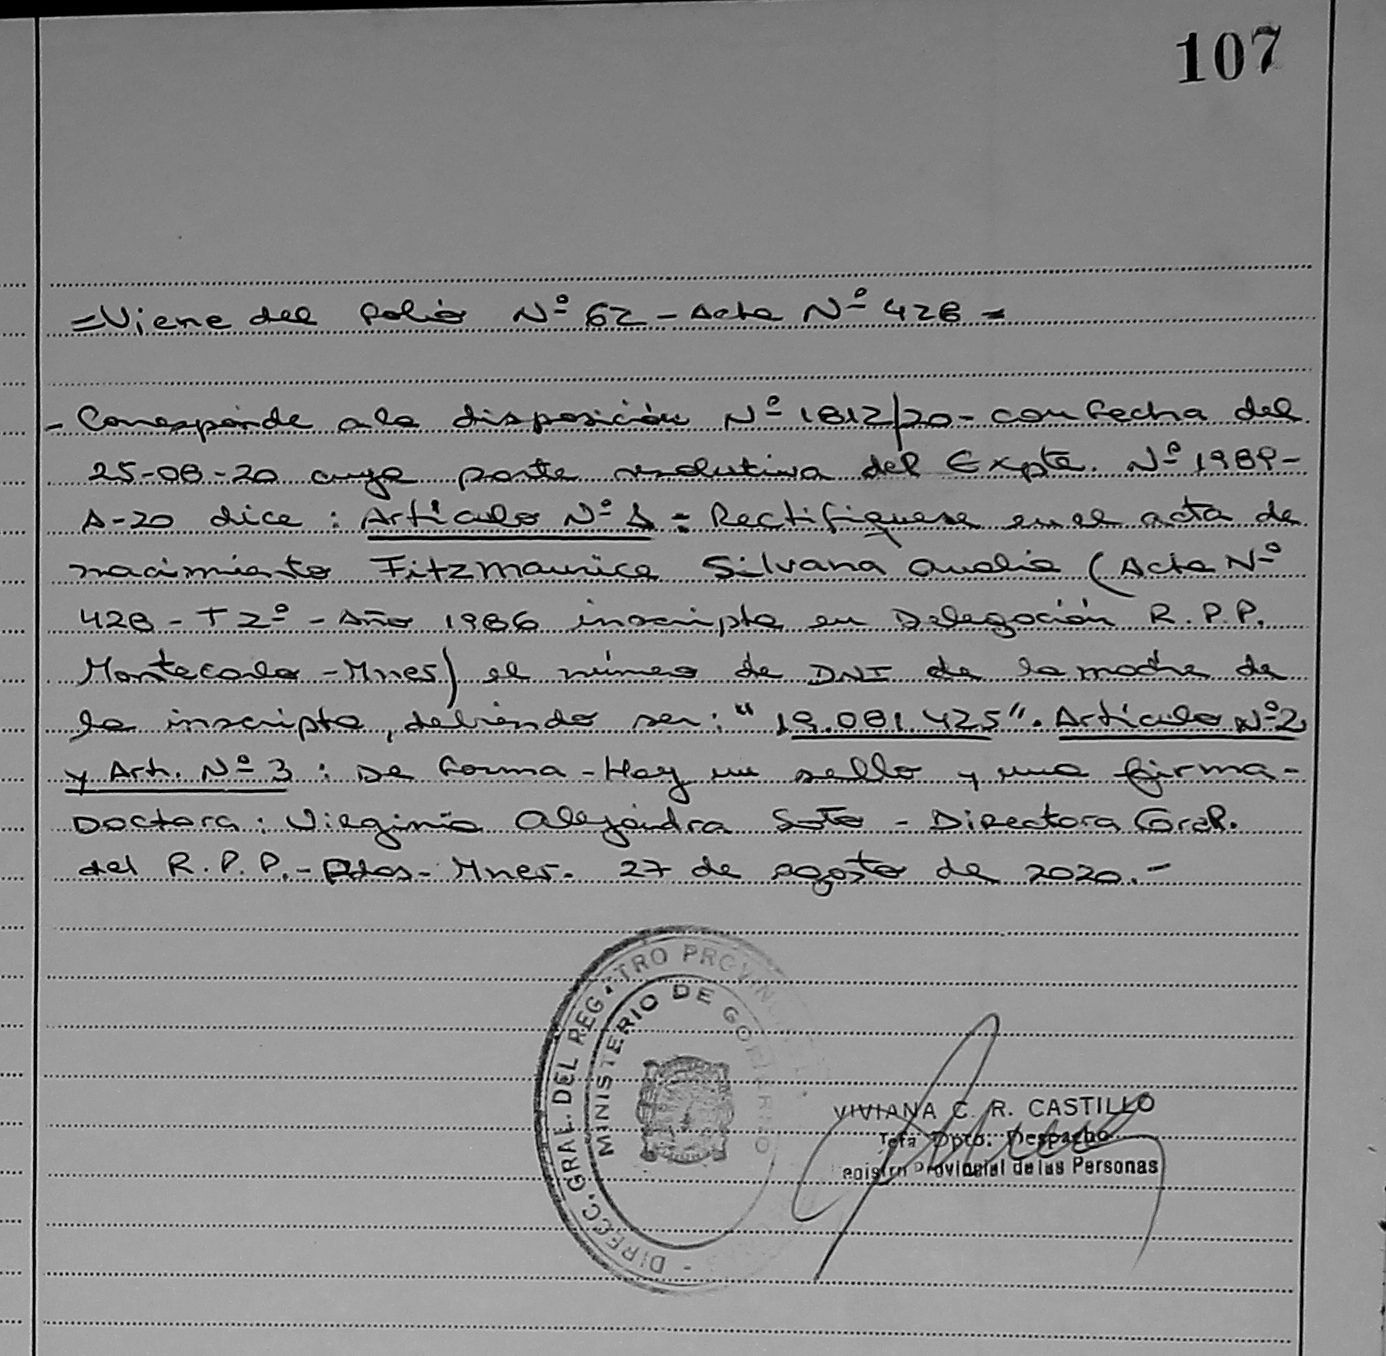 107
=Viene del folio Nº 62 - Acta Nº 428 =
- Corresponde a la disposición Nº 1812/20 - con fecha del
25-08-20 cuya parte resolutiva del Expte. Nº 1989-
A-20 dice: Artículo Nº 1 = Rectifiquese en el acta de
nacimiento Fitzmaurice Silvana Analia (Acta Nº
428 - T 2º - Año 1986 inscripta en Delegación R.P.P.
Montecarlo - Mnes) el número de DNI de la madre de
la inscripta, debiendo ser: "19.081.425". Artículo Nº 2
y Art. Nº 3 : De forma - Hay un sello y una firma -
Doctora: Virginia Alejandra Soto - Directora Gral.
del R.P.P. - Pdas - Mnes. 27 de agosto de 2020.-
DIRECC. GRAL. DEL REGISTRO PROVINC
MINISTERIO DE GOBIERNO
VIVIANA C. R. CASTILLO
Jefa Dpto. Despacho
egistro Provincial de las Personas